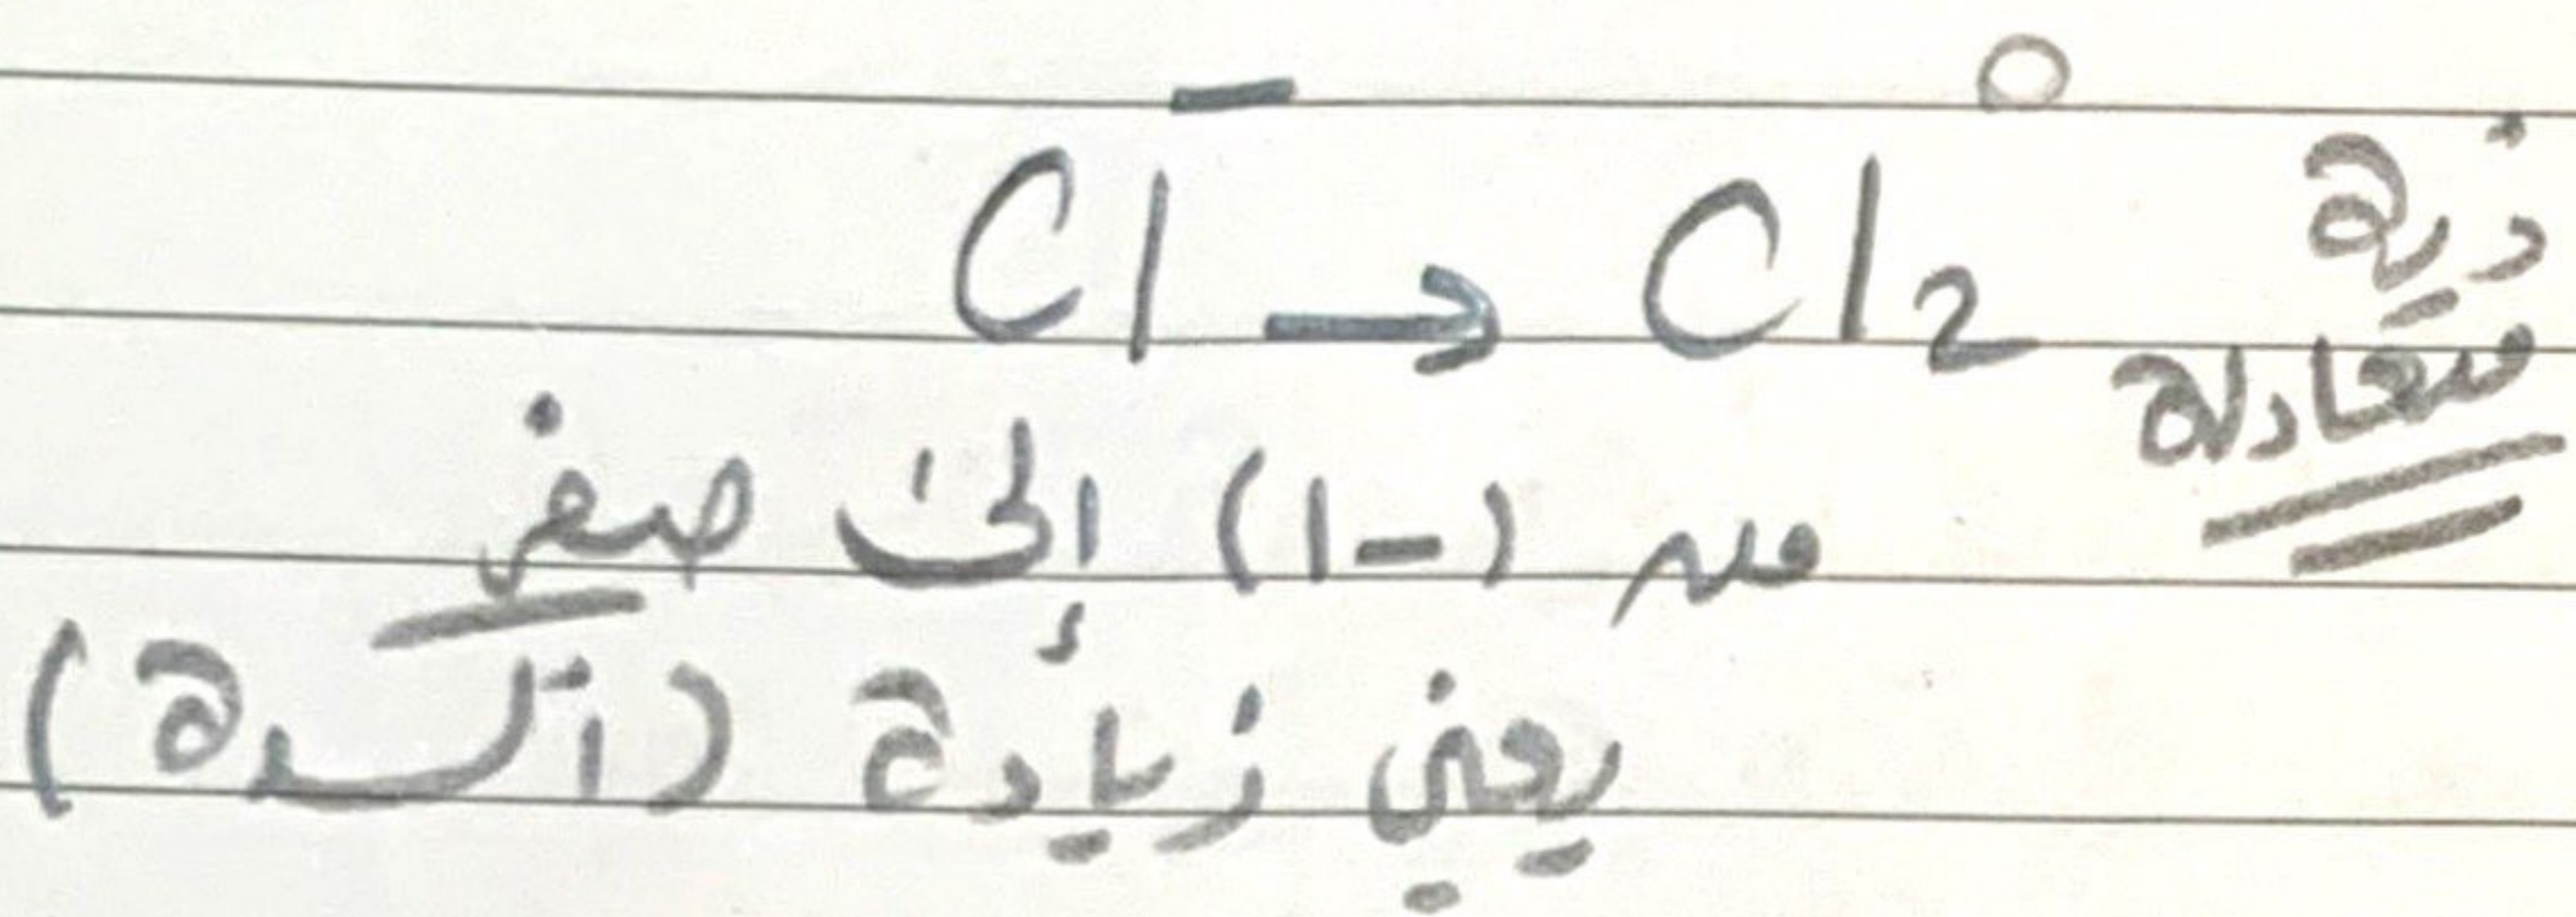 Cl⁻ → Cl₂⁰
ذرة
متعادلة
من (-1) إلى صفر
يعني زيادة (أكسدة)